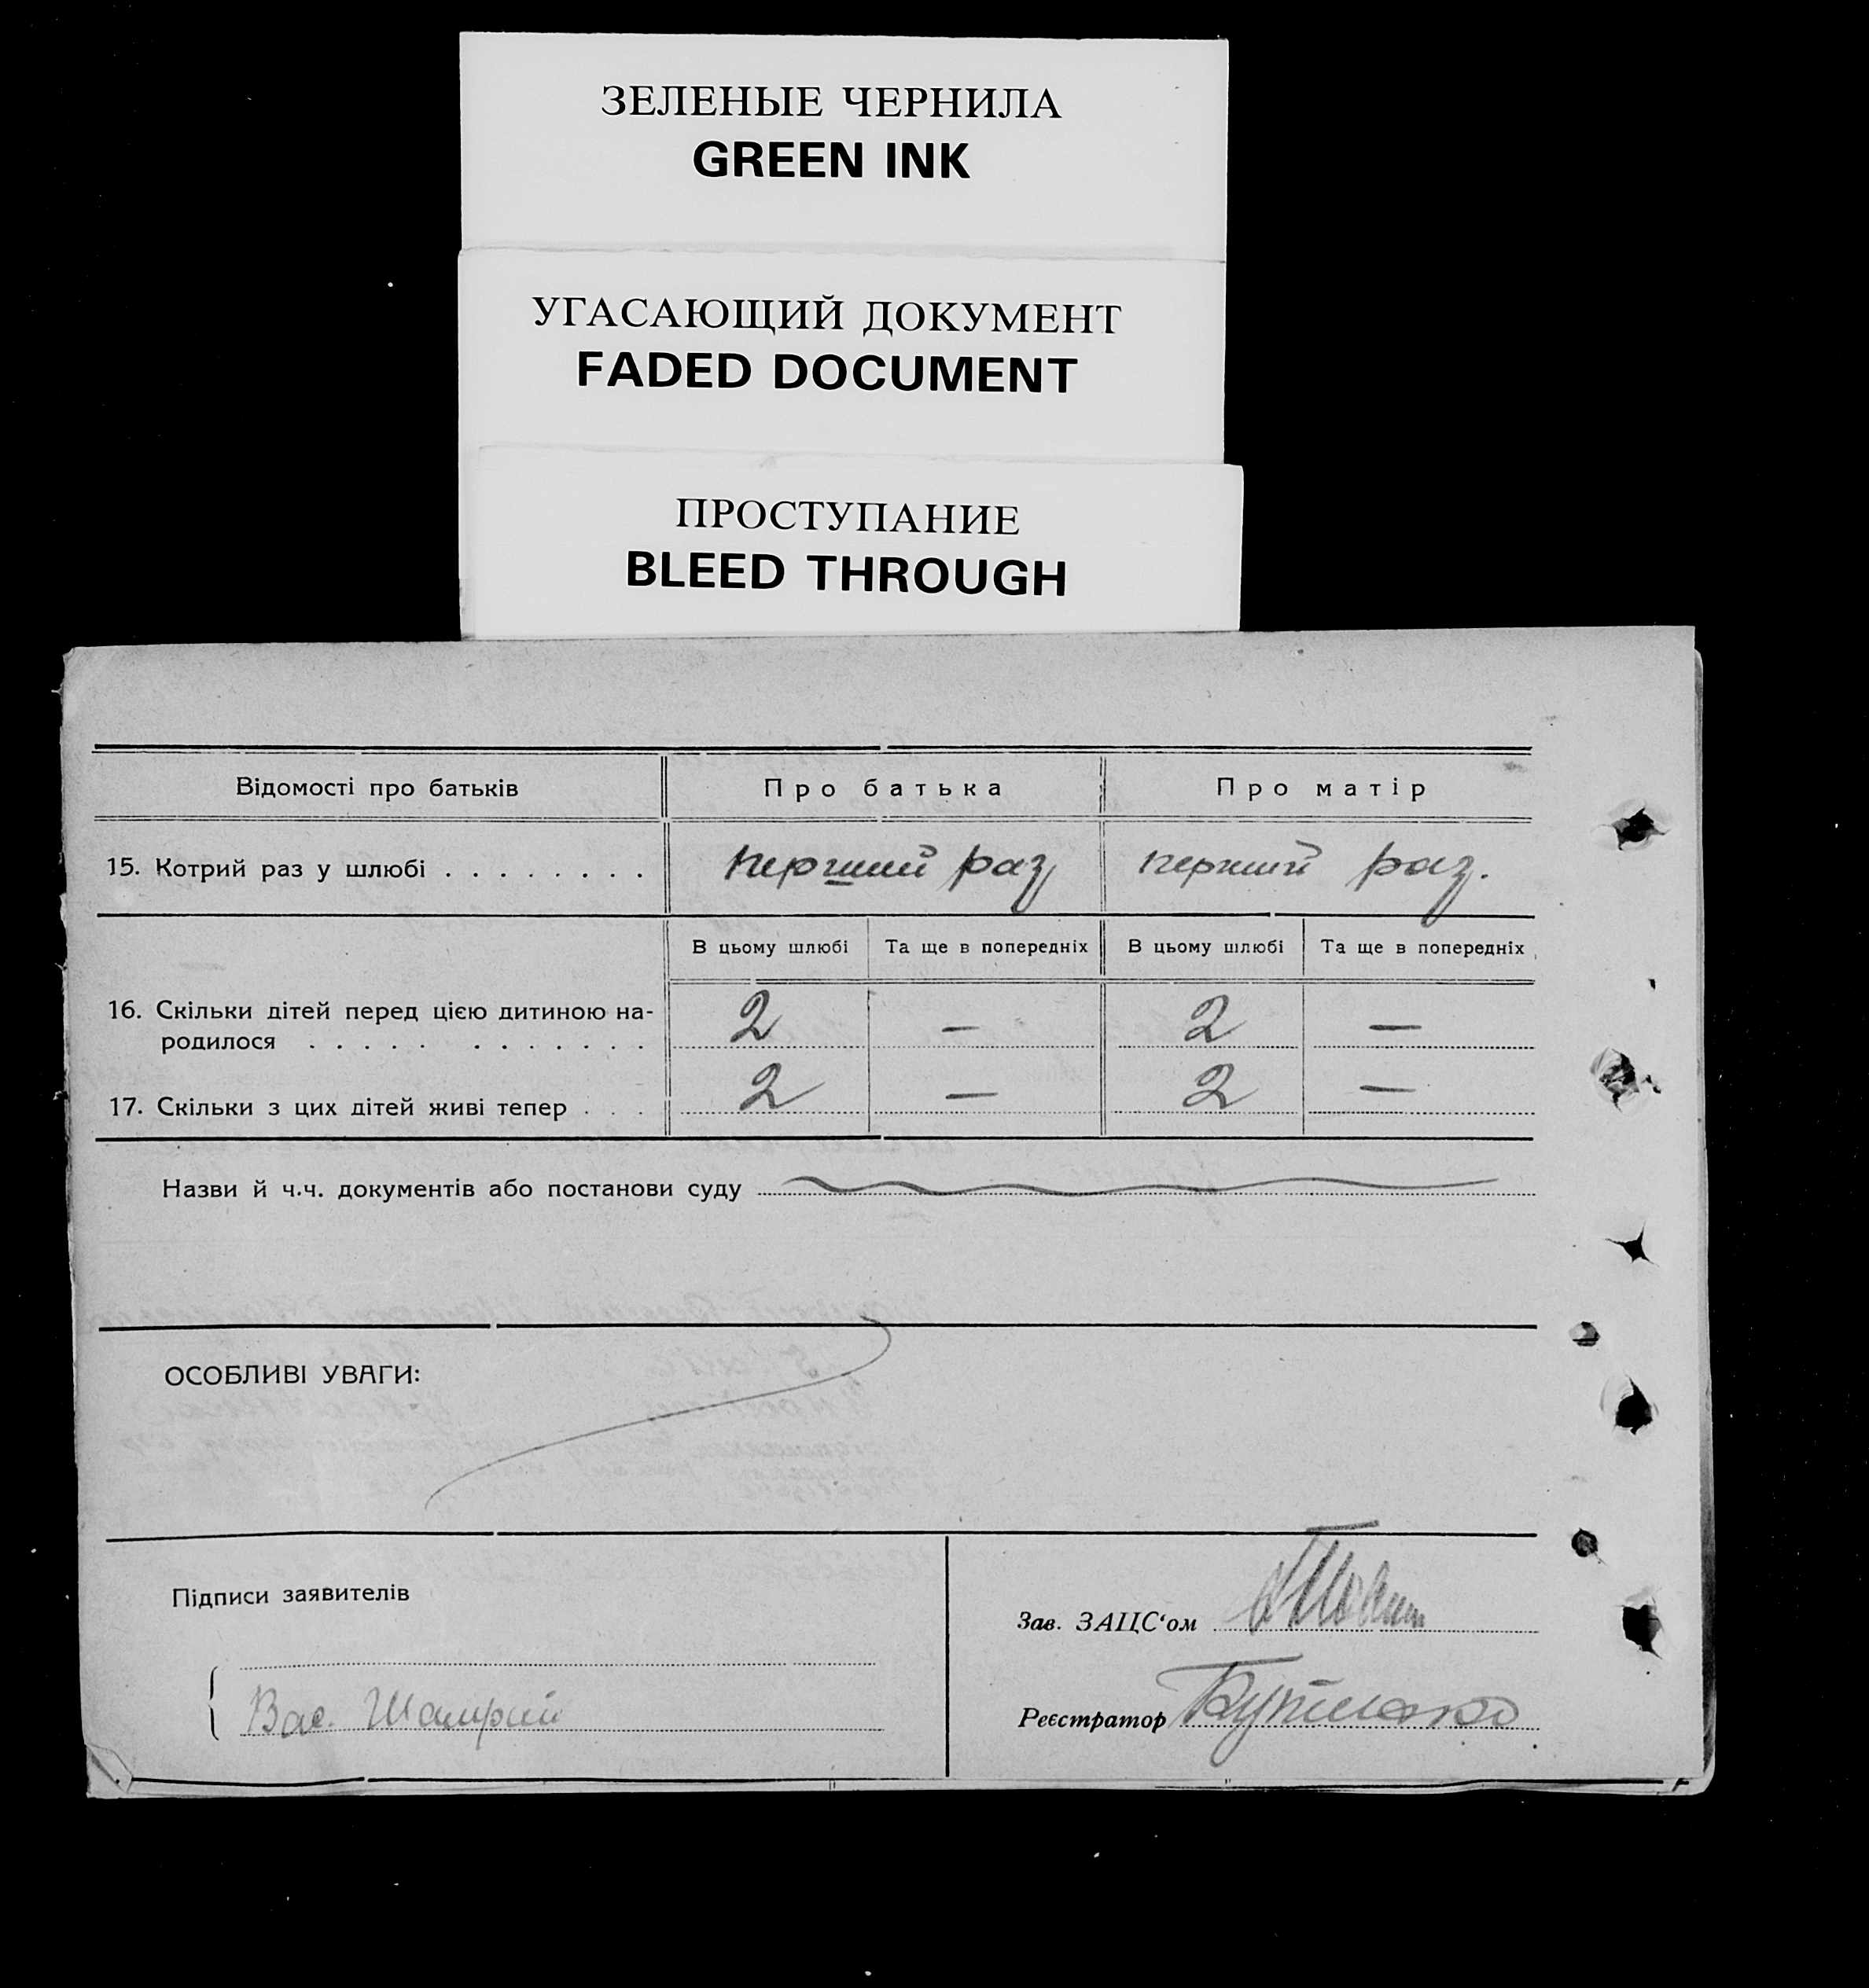 ЗЕЛЕНЫЕ ЧЕРНИЛА
GREEN INK
УГАСАЮЩИЙ ДОКУМЕНТ
FADED DOCUMENT
ПРОСТУПАНИЕ
BLEED THROUGH
Відомості про батьків Про батька Про матір
15. Котрий раз у шлюбі . . . . . . . . перший раз перший раз.
В цьому шлюбі Та ще в попередніх В цьому шлюбі Та ще в попередніх
16. Скільки дітей перед цією дитиною на-
родилося . . . . . . . . . . . . 2 — 2 —
17. Скільки з цих дітей живі тепер . . . 2 — 2 —
Назви й ч.ч. документів або постанови суду
ОСОБЛИВІ УВАГИ:
Підписи заявителів
Зав. ЗАЦС‘ом
Вас. Шамрай
Реєстратор